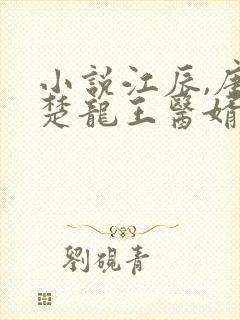 小說江辰,唐
楚龍王醫婿
劉硯青